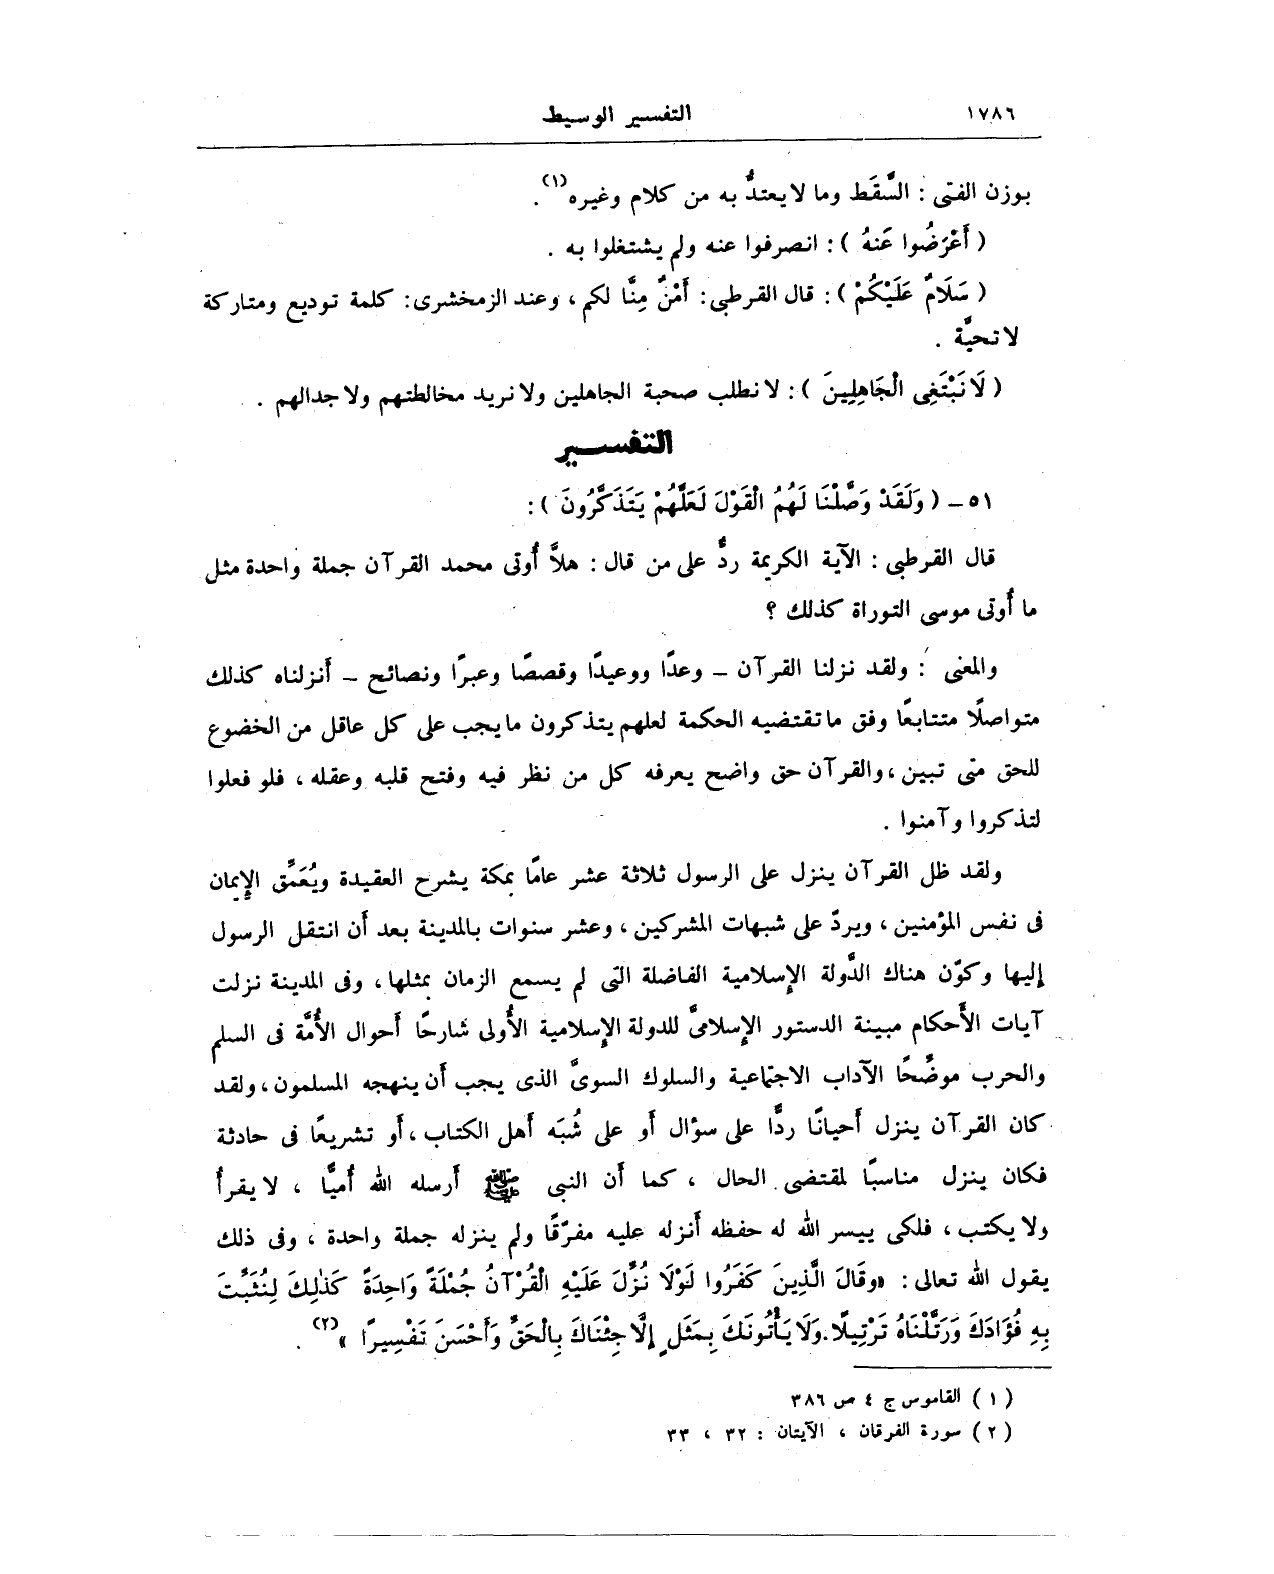 ١٧٨٦ التفسير الوسيط
بوزن الفتى : السَّقَط وما لا يعتدُّ به من كلام وغيره(١) .
( أَعْرَضُوا عَنهُ ) : انصرفوا عنه ولم يشتغلوا به .
( سَلَامٌ عَلَيْكُمْ ) : قال القرطبى : أَمْنٌ مِنَّا لكم ، وعند الزمخشرى : كلمة توديع ومتاركة
لا تحيَّة .
( لَا نَبْتَغِى الْجَاهِلِينَ ) : لا نطلب صحبة الجاهلين ولا نريد مخالطتهم ولا جدالهم .
التفسير
٥١ - ( وَلَقَدْ وَصَّلْنَا لَهُمُ الْقَوْلَ لَعَلَّهُمْ يَتَذَكَّرُونَ ) :
قال القرطبى : الآية الكريمة ردٌّ على من قال : هلاَّ أُوتى محمد القرآن جملة واحدة مثل
ما أُوتى موسى التوراة كذلك ؟
والمعنى : ولقد نزلنا القرآن - وعدًا ووعيدًا وقصصًا وعبرًا ونصائح - أنزلناه كذلك
متواصلًا متتابعًا وفق ما تقتضيه الحكمة لعلهم يتذكرون ما يجب على كل عاقل من الخضوع
للحق متى تبين ، والقرآن حق واضح يعرفه كل من نظر فيه وفتح قلبه وعقله ، فلو فعلوا
لتذكروا وآمنوا .
ولقد ظل القرآن ينزل على الرسول ثلاثة عشر عامًا بمكة يشرح العقيدة ويُعَمِّق الإيمان
فى نفس المؤمنين ، ويردّ على شبهات المشركين ، وعشر سنوات بالمدينة بعد أن انتقل الرسول
إليها وكوّن هناك الدَّولة الإسلامية الفاضلة التى لم يسمع الزمان بمثلها ، وفى المدينة نزلت
آيات الأَحكام مبينة الدستور الإسلامىَّ للدولة الإسلامية الأُولى شارحًا أحوال الأُمَّة فى السلم
والحرب موضِّحًا الآداب الاجتماعية والسلوك السوىَّ الذى يجب أن ينهجه المسلمون ، ولقد
كان القرآن ينزل أحيانًا ردًّا على سؤال أو على شُبَه أهل الكتاب ، أو تشريعًا فى حادثة
فكان ينزل مناسبًا لمقتضى الحال ، كما أن النبى ﷺ أرسله الله أُميًّا ، لا يقرأُ
ولا يكتب ، فلكى ييسر الله له حفظه أنزله عليه مفرّقًا ولم ينزله جملة واحدة ، وفى ذلك
يقول الله تعالى : «وقَالَ الَّذِينَ كَفَرُوا لَوْلَا نُزِّلَ عَلَيْهِ الْقُرْآنُ جُمْلَةً وَاحِدَةً كَذَلِكَ لِنُثَبِّتَ
بِهِ فُؤَادَكَ وَرَتَّلْنَاهُ تَرْتِيلًا . وَلَا يَأْتُونَكَ بِمَثَلٍ إِلَّا جِئْنَاكَ بِالْحَقِّ وَأَحْسَنَ تَفْسِيرًا »(٢) .
( ١ ) القاموس ج ٤ ص ٣٨٦
( ٢ ) سورة الفرقان ، الآيتان : ٣٢ ، ٣٣